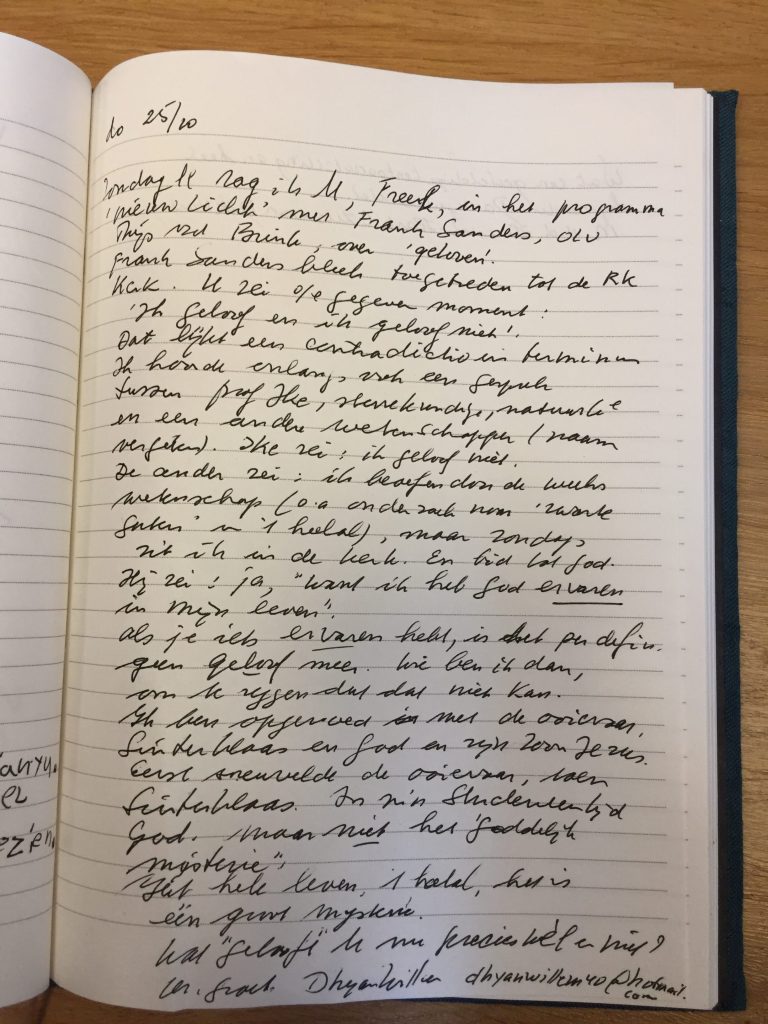 do 25/10
Zondag ll zag ik U, Freek, in het programma
'nieuw licht' met Frank Sanders, olv
Thijs vd Brink, over 'geloven'.
Frank Sanders bleek toegetreden tot de RK
Kerk. U zei o/e gegeven moment:
'Ik geloof en ik geloof niet'.
Dat lijkt een contradictio in terminum
Ik hoorde onlangs ook een gesprek
tussen prof Ike, sterrekundige, natuurk^e
en een andere wetenschapper (naam
vergeten). Ike zei: ik geloof niet.
De ander zei: ik beoefen door de weeks
wetenschap (o.a onderzoek naar 'zwarte
gaten' in 't heelal), maar zondags
zit ik in de kerk. En bid tot god.
Hij zei: ja, "want ik heb God ervaren
in mijn leven".
als je iets ervaren hebt, is het per defin.
geen geloof meer. Wie ben ik dan,
om te zeggen dat dat niet kan.
Ik ben opgevoed met de ooievaar,
Sinterklaas en God en zijn Zoon Jezus.
Eerst sneuvelde de ooievaar, toen
Sinterklaas. In mijn Studententijd
God. maar niet het 'goddelijk
mysterie".
Het hele leven, 't heelal, het is
één groot mysterie.
Wat "gelooft" U nu precies wèl en niet?
vr. groet. Dhyan Willem dhyanwillem40@hotmail.
com
anyu.
el
ezien.